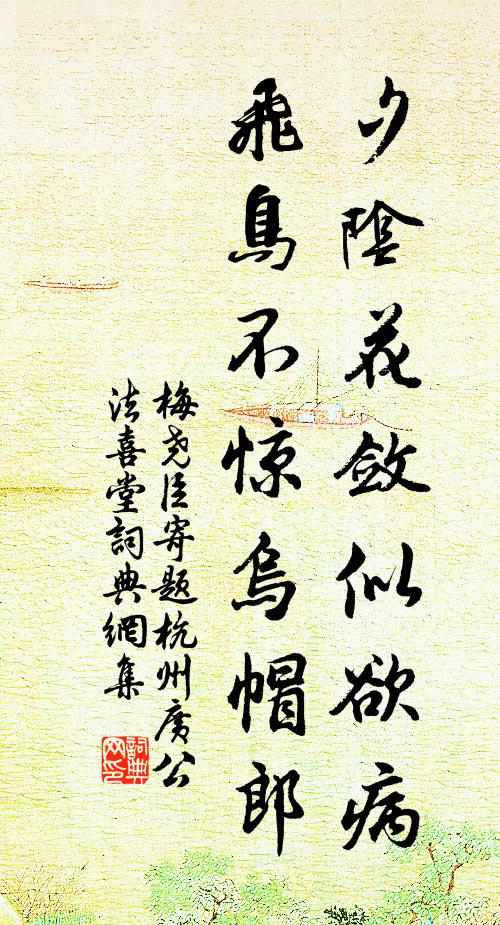 夕陰花斂似欲病
飛鳥不惊烏帽郎
梅尧臣寄题杭州廣公
法喜堂詞典網集
詞典
网印